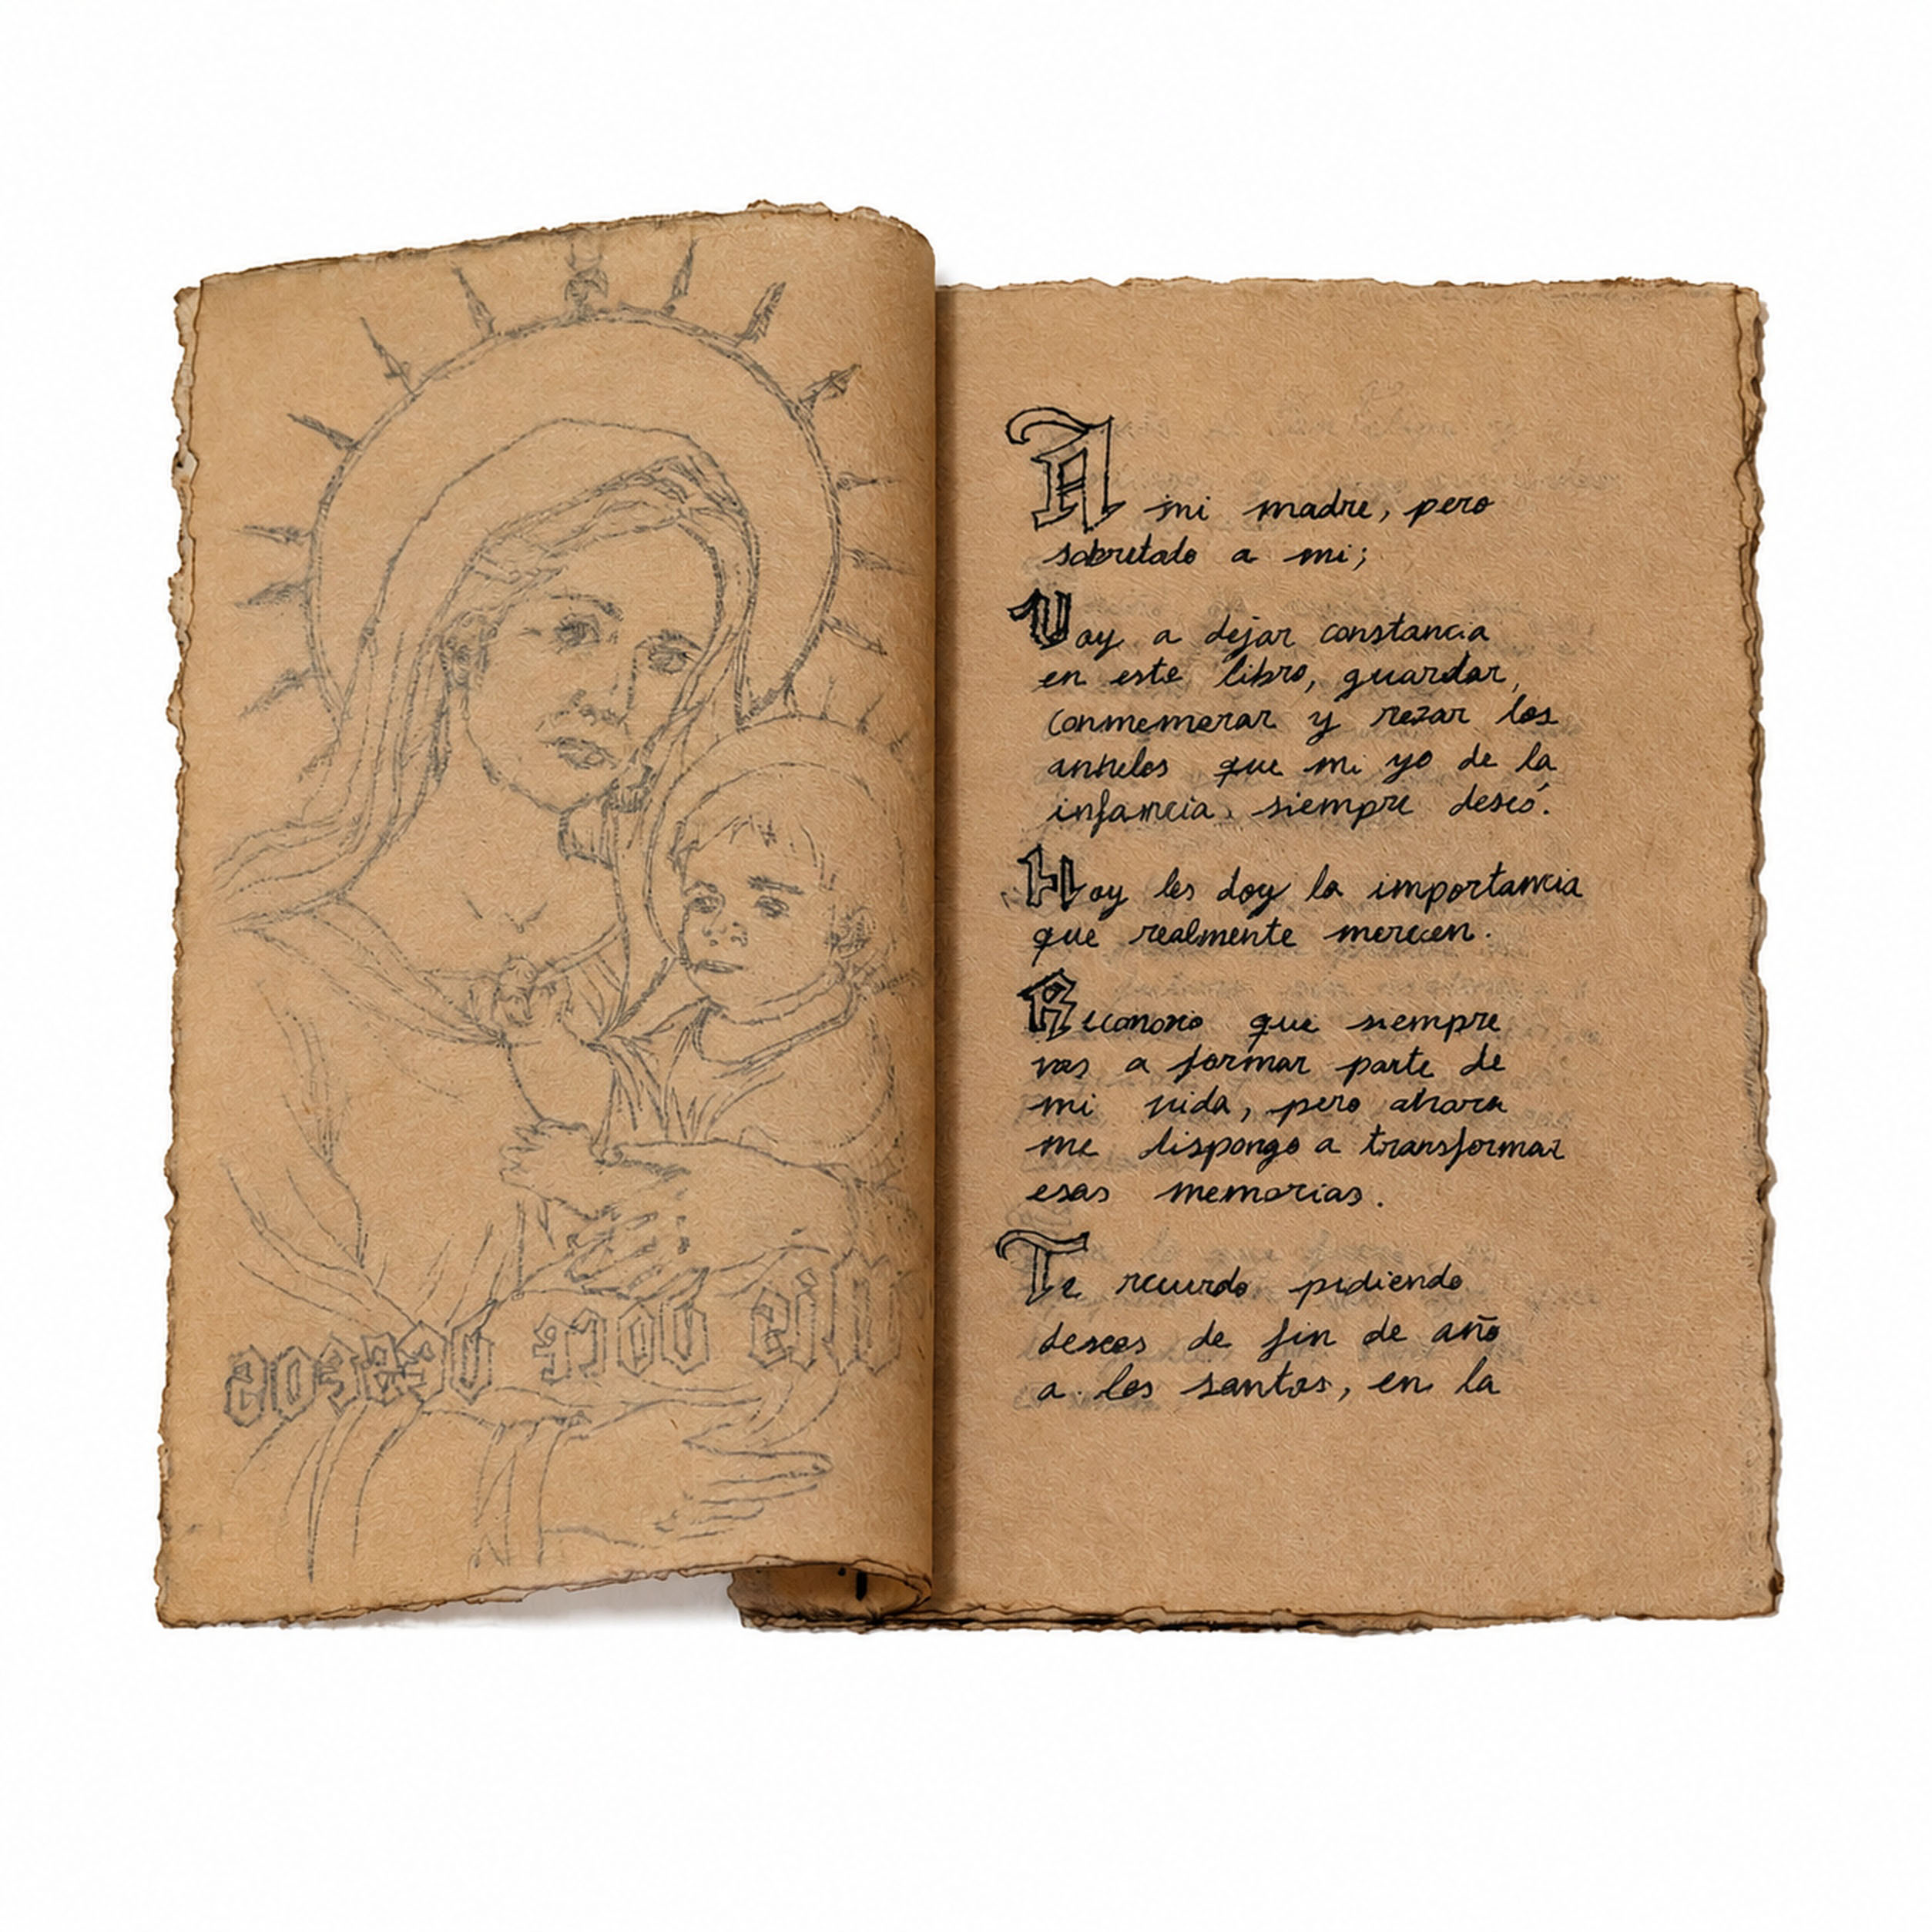 Mis doce deseos
A mi madre, pero
sobretodo a mi;
Voy a dejar constancia
en este libro, guardar,
conmemorar y rezar los
anhelos que mi yo de la
infancia, siempre deseó.
Hoy les doy la importancia
que realmente merecen.
Reconozco que siempre
vas a formar parte de
mi vida, pero ahora
me dispongo a transformar
esas memorias.
Te recuerdo pidiendo
deseos de fin de año
a los santos, en la